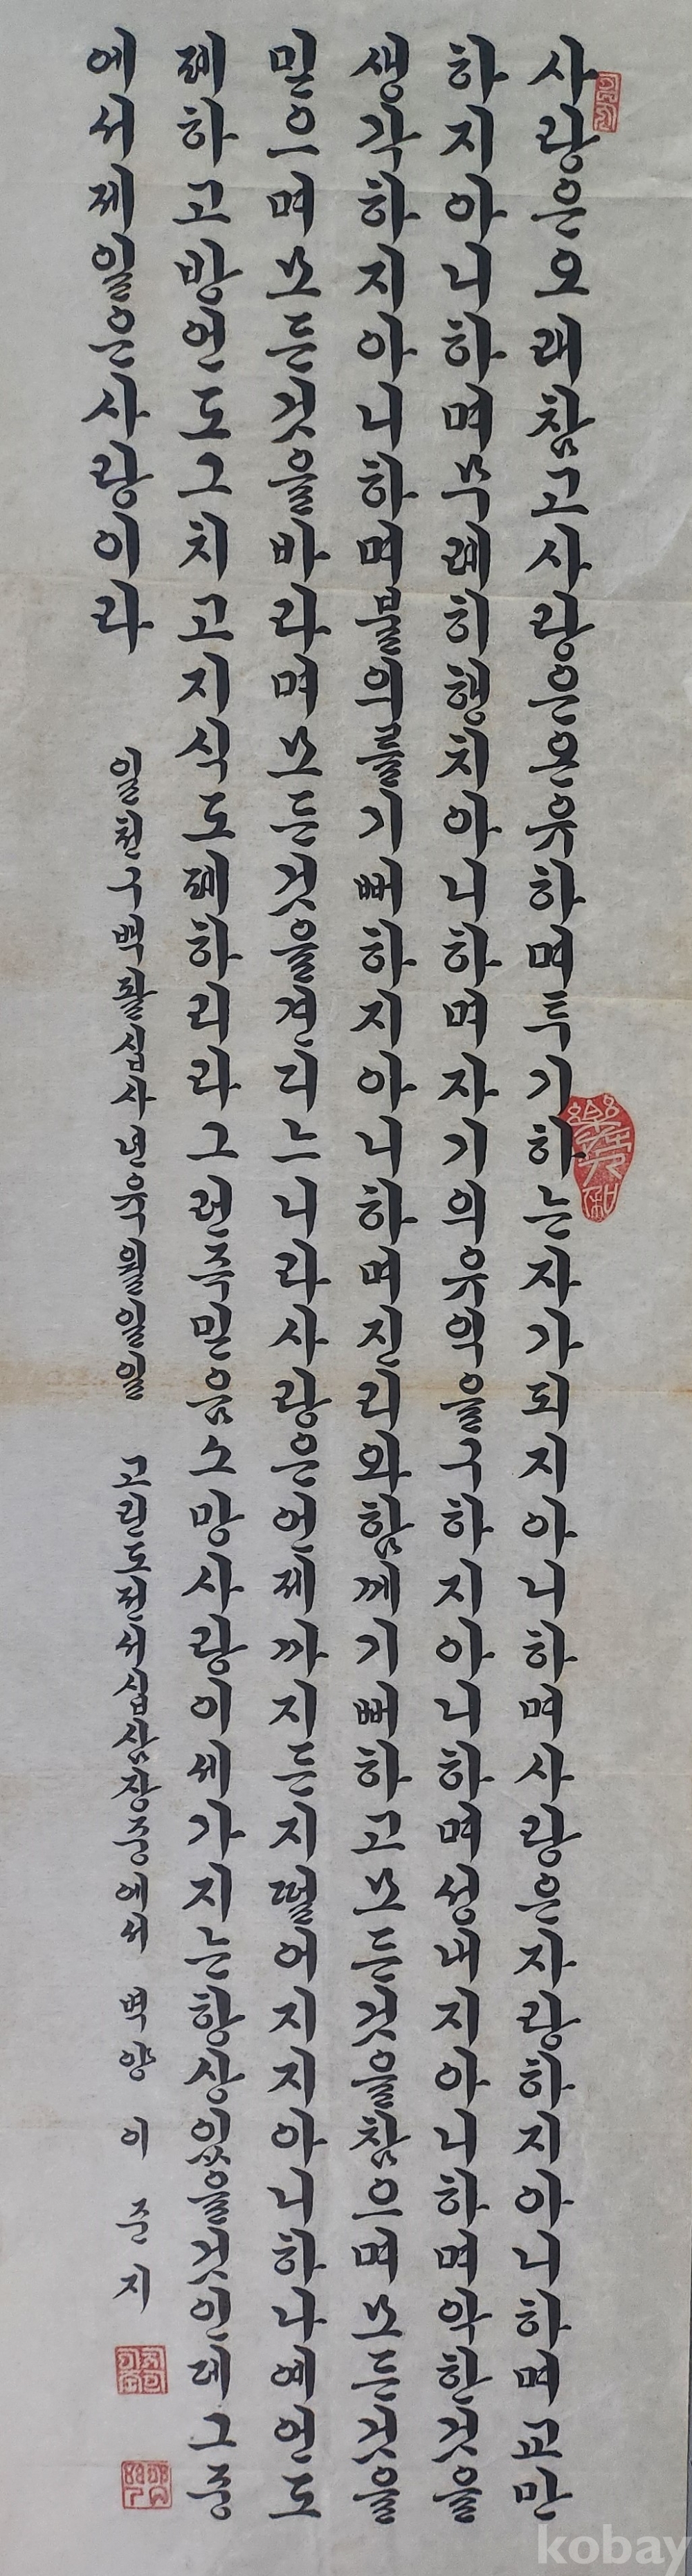 사랑은오래참고사랑은온유하며투기하는자가되지아니하며사랑은자랑하지아니하며교만
하지아니하며무례히행치아니하며자기의유익을구하지아니하며성내지아니하며악한것을
생각하지아니하며불의를기뻐하지아니하며진리와함께기뻐하고모든것을참으며모든것을
믿으며모든것을바라며모든것을견디느니라사랑은언제까지든지떨어지지아니하나예언도
폐하고방언도그치고지식도폐하리라그런즉믿음소망사랑이세가지는항상있을것인데그중
에서제일은사랑이라 일천구백팔십사년유월일일 고린도전서십삼장중에서 벽양 이 준 지
kobay